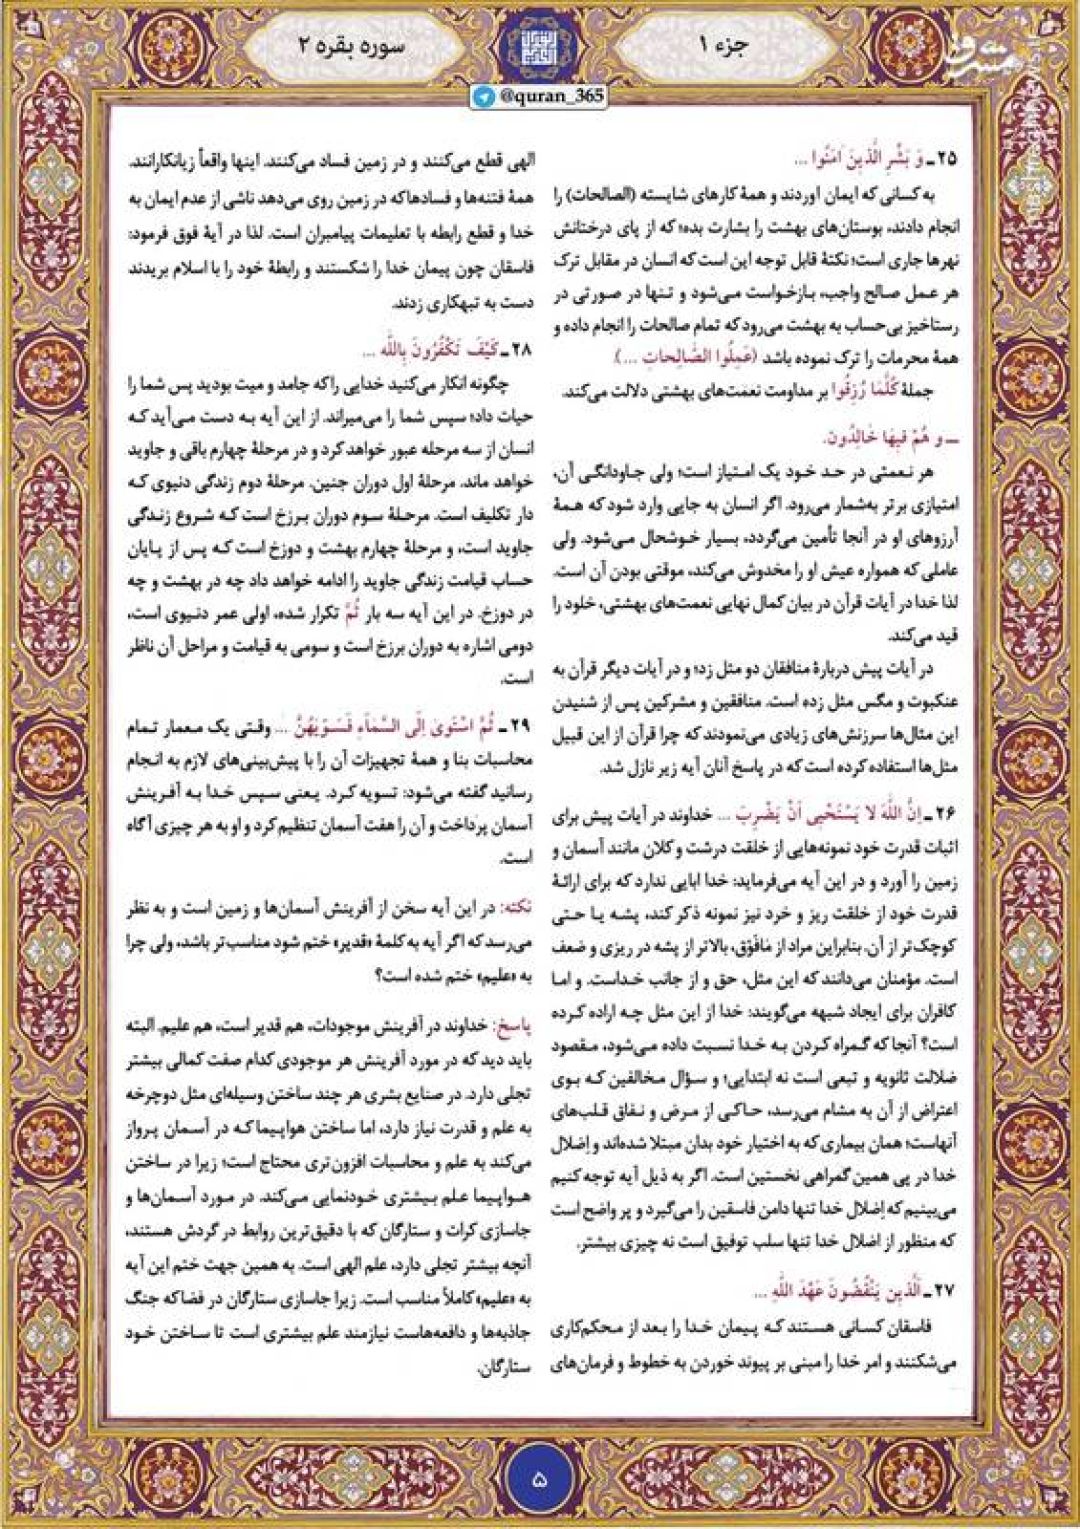 جزء ۱
سوره بقره ۲
@quran_365
۲۵ـ وَ بَشِّرِ الَّذینَ آمَنُوا ...
به کسانی که ایمان آوردند و همهٔ کارهای شایسته (الصالحات) را
انجام دادند، بوستان‌های بهشت را بشارت بده؛ که از پای درختانش
نهرها جاری است؛ نکتهٔ قابل توجه این است که انسان در مقابل ترک
هر عمل صالح واجب، بازخواست می‌شود و تنها در صورتی در
رستاخیز بی‌حساب به بهشت می‌رود که تمام صالحات را انجام داده و
همهٔ محرمات را ترک نموده باشد (عَمِلُوا الصّالِحاتِ ...).
جملهٔ كُلَّمَا رُزِقُوا بر مداومت نعمت‌های بهشتی دلالت می‌کند.
ـ و هُمْ فیهَا خَالِدُونَ.
هر نعمتی در حد خود یک امتیاز است؛ ولی جاودانگی آن،
امتیازی برتر به‌شمار می‌رود. اگر انسان به جایی وارد شود که همهٔ
آرزوهای او در آنجا تأمین می‌گردد، بسیار خوشحال می‌شود. ولی
عاملی که همواره عیش او را مخدوش می‌کند، موقتی بودن آن است.
لذا خدا در آیات قرآن در بیان کمال نهایی نعمت‌های بهشتی، خلود را
قید می‌کند.
در آیات پیش دربارهٔ منافقان دو مثل زد؛ و در آیات دیگر قرآن به
عنکبوت و مگس مثل زده است. منافقین و مشرکین پس از شنیدن
این مثال‌ها سرزنش‌های زیادی می‌نمودند که چرا قرآن از این قبیل
مثل‌ها استفاده کرده است که در پاسخ آنان آیه زیر نازل شد.
۲۶ـ إِنَّ اللّٰهَ لا یَسْتَحْیِی أَنْ یَضْرِبَ ... خداوند در آیات پیش برای
اثبات قدرت خود نمونه‌هایی از خلقت درشت و کلان مانند آسمان و
زمین را آورد و در این آیه می‌فرماید: خدا ابایی ندارد که برای ارائهٔ
قدرت خود از خلقت ریز و خرد نیز نمونه ذکر کند، پشه یا حتی
کوچک‌تر از آن. بنابراین مراد از مَافَوْق، بالاتر از پشه در ریزی و ضعف
است. مؤمنان می‌دانند که این مثل، حق و از جانب خداست. و اما
کافران برای ایجاد شبهه می‌گویند: خدا از این مثل چه اراده کرده
است؟ آنجا که گمراه کردن به خدا نسبت داده می‌شود، مقصود
ضلالت ثانویه و تبعی است نه ابتدایی؛ و سؤال مخالفین که بوی
اعتراض از آن به مشام می‌رسد، حاکی از مرض و نفاق قلب‌های
آنهاست؛ همان بیماری که به اختیار خود بدان مبتلا شده‌اند و إضلال
خدا در پی همین گمراهی نخستین است. اگر به ذیل آیه توجه کنیم
می‌بینیم که إضلال خدا تنها دامن فاسقین را می‌گیرد و پر واضح است
که منظور از اضلال خدا تنها سلب توفیق است نه چیزی بیشتر.
۲۷ـ اَلَّذینَ یَنْقُضُونَ عَهْدَ اللّٰهِ ...
فاسقان کسانی هستند که پیمان خدا را بعد از محکم‌کاری
می‌شکنند و امر خدا را مبنی بر پیوند خوردن به خطوط و فرمان‌های
الهی قطع می‌کنند و در زمین فساد می‌کنند. اینها واقعاً زیانکارانند.
همهٔ فتنه‌ها و فسادها که در زمین روی می‌دهد ناشی از عدم ایمان به
خدا و قطع رابطه با تعلیمات پیامبران است. لذا در آیهٔ فوق فرمود:
فاسقان چون پیمان خدا را شکستند و رابطهٔ خود را با اسلام بریدند
دست به تبهکاری زدند.
۲۸ـ كَیْفَ تَكْفُرُونَ بِاللّٰه ...
چگونه انکار می‌کنید خدایی را که جامد و میت بودید پس شما را
حیات داد؛ سپس شما را می‌میراند. از این آیه به دست می‌آید که
انسان از سه مرحله عبور خواهد کرد و در مرحلهٔ چهارم باقی و جاوید
خواهد ماند. مرحلهٔ اول دوران جنین، مرحلهٔ دوم زندگی دنیوی که
دار تکلیف است. مرحلهٔ سوم دوران برزخ است که شروع زندگی
جاوید است، و مرحلهٔ چهارم بهشت و دوزخ است که پس از پایان
حساب قیامت زندگی جاوید را ادامه خواهد داد چه در بهشت و چه
در دوزخ. در این آیه سه بار ثُمَّ تکرار شده، اولی عمر دنیوی است،
دومی اشاره به دوران برزخ است و سومی به قیامت و مراحل آن ناظر
است.
۲۹ـ ثُمَّ اسْتَوىٰ إِلَى السَّمَاءِ فَسَوّیٰهُنَّ ... وقتی یک معمار تمام
محاسبات بنا و همهٔ تجهیزات آن را با پیش‌بینی‌های لازم به انجام
رسانید گفته می‌شود: تسویه کرد. یعنی سپس خدا به آفرینش
آسمان پرداخت و آن را هفت آسمان تنظیم کرد و او به هر چیزی آگاه
است.
نکته: در این آیه سخن از آفرینش آسمان‌ها و زمین است و به نظر
می‌رسد که اگر آیه به کلمهٔ «قدیر» ختم شود مناسب‌تر باشد، ولی چرا
به «علیم» ختم شده است؟
پاسخ: خداوند در آفرینش موجودات، هم قدیر است، هم علیم. البته
باید دید که در مورد آفرینش هر موجودی کدام صفت کمالی بیشتر
تجلی دارد. در صنایع بشری هر چند ساختن وسیله‌ای مثل دوچرخه
به علم و قدرت نیاز دارد، اما ساختن هواپیما که در آسمان پرواز
می‌کند به علم و محاسبات افزون‌تری محتاج است؛ زیرا در ساختن
هواپیما علم بیشتری خودنمایی می‌کند. در مورد آسمان‌ها و
جاسازی کرات و ستارگان که با دقیق‌ترین روابط در گردش هستند،
آنچه بیشتر تجلی دارد، علم الهی است. به همین جهت ختم این آیه
به «علیم» کاملاً مناسب است. زیرا جاسازی ستارگان در فضا که جنگ
جاذبه‌ها و دافعه‌هاست نیازمند علم بیشتری است تا ساختن خود
ستارگان.
۵